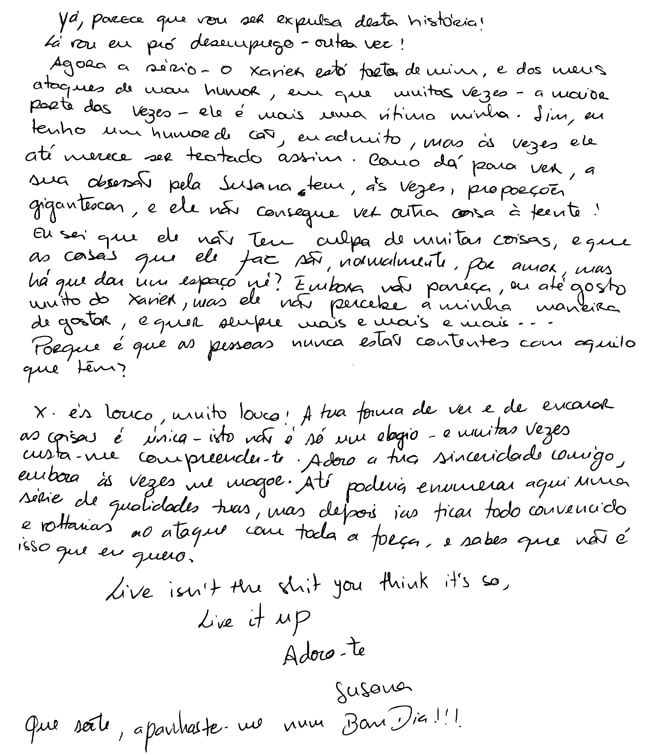 Yá, parece que vou ser expulsa desta história!
Lá vou eu pró desemprego - outra vez!
Agora a sério - o Xavier está farto de mim, e dos meus
ataques de mau humor, em que muitas vezes - a maior
parte das vezes - ele é mais uma vítima minha. Sim, eu
tenho um humor de cão, eu admito, mas às vezes ele
até merece ser tratado assim. Como dá para ver, a
sua obsessão pela Susana, tem, às vezes, proporções
gigantescas, e ele não consegue ver outra coisa à frente!
Eu sei que ele não tem culpa de muitas coisas, e que
as coisas que ele faz são, normalmente, por amor, mas
há que dar um espaço né? Embora não pareça, eu até gosto
muito do Xavier, mas ele não percebe a minha maneira
de gostar, e quer sempre mais e mais e mais...
Porque é que as pessoas nunca estão contentes com aquilo
que têm?
X. és louco, muito louco! A tua forma de ver e de encarar
as coisas é única - isto não é só um elogio - e muitas vezes
custa-me compreender-te. Adoro a tua sinceridade comigo,
embora às vezes me magoe. Até poderia enumerar aqui uma
série de qualidades tuas, mas depois ias ficar todo convencido
e voltarias ao ataque com toda a força, e sabes que não é
isso que eu quero.
Live isn't the shit you think it's so,
Live it up
Adoro-te
Susana
Que sorte, apanhaste-me num Bom Dia!!!